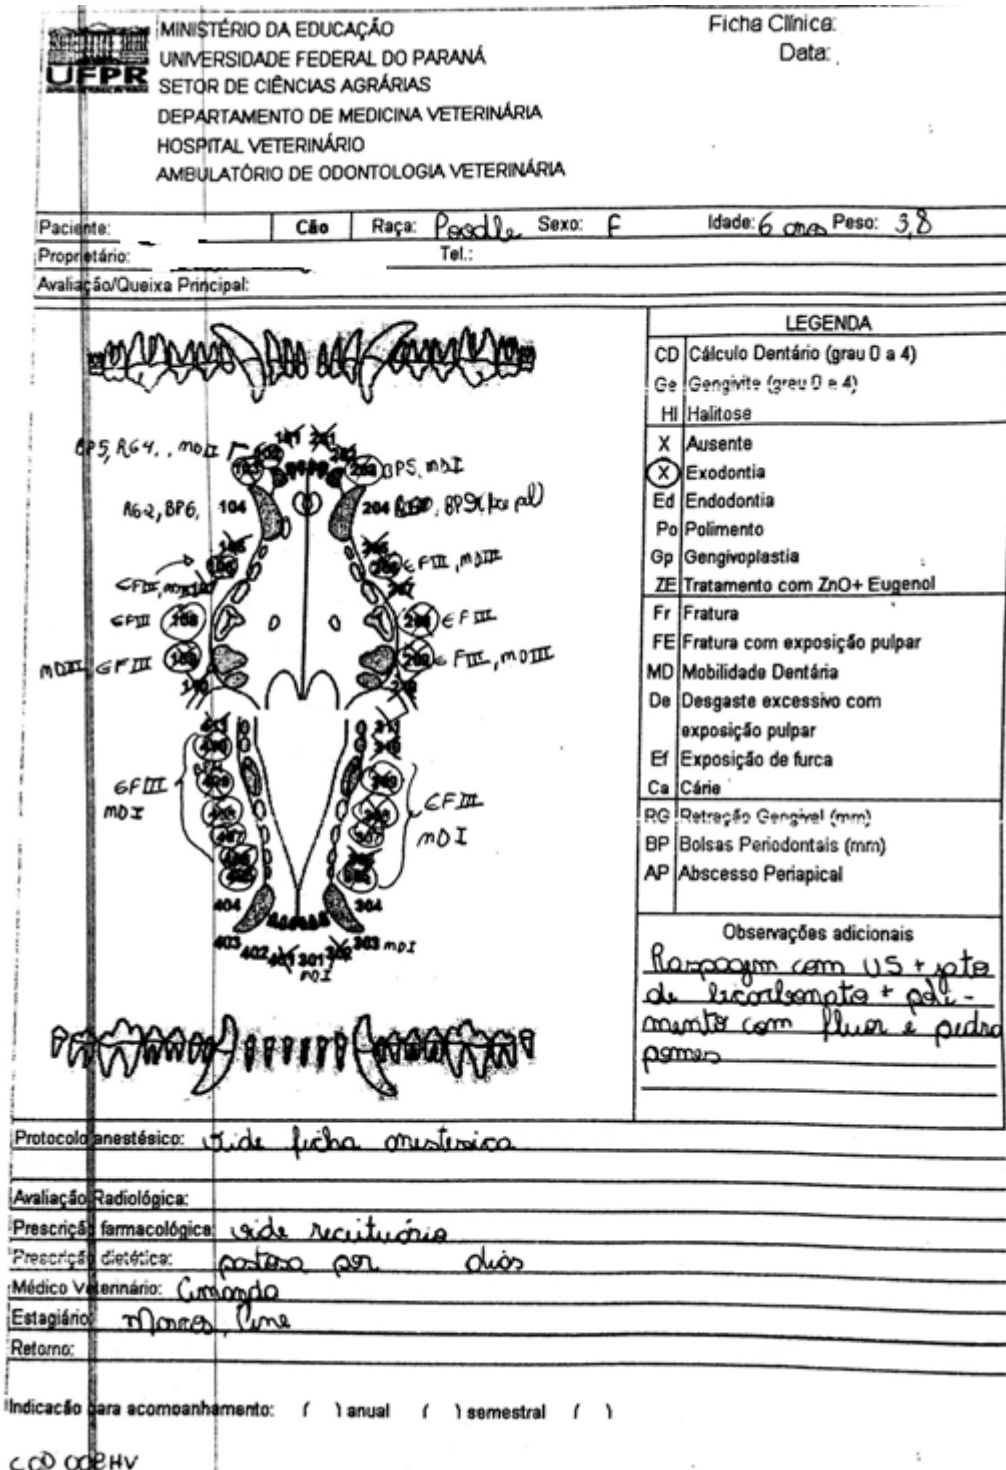 MINISTÉRIO DA EDUCAÇÃO
UNIVERSIDADE FEDERAL DO PARANÁ
SETOR DE CIÊNCIAS AGRÁRIAS
DEPARTAMENTO DE MEDICINA VETERINÁRIA
HOSPITAL VETERINÁRIO
AMBULATÓRIO DE ODONTOLOGIA VETERINÁRIA
UFPR
Ficha Clínica:
Data:
Paciente: Cão Raça: Poodle Sexo: F Idade: 6 anos Peso: 3,8
Proprietário: Tel.:
Avaliação/Queixa Principal:
101 201
BP5, RG4, MDI 102 202
103 203 BP5, MDI
RG2, BP6, 104 204
105 205
106 206 EFIII, MDIII
107 207
EFIII 108 208 EFIII
EFIII 109 209 EFIII, MDIII
110 210
411 311
410 310
409 309
EFIII 408 308 EFIII
MDI 407 307 MDI
406 306
405 305
404 304
403 402 401 301 302 303 MDI
MDI
LEGENDA
CD Cálculo Dentário (grau 0 a 4)
Ge Gengivite (grau 0 a 4)
Hl Halitose
X Ausente
X Exodontia
Ed Endodontia
Po Polimento
Gp Gengivoplastia
ZE Tratamento com ZnO+ Eugenol
Fr Fratura
FE Fratura com exposição pulpar
MD Mobilidade Dentária
De Desgaste excessivo com
exposição pulpar
Ef Exposição de furca
Ca Cárie
RG Retração Gengival (mm)
BP Bolsas Periodontais (mm)
AP Abscesso Periapical
Observações adicionais
Raspagem com US + jato
de bicarbonato + poli-
mento com fluor e pedra
pomes
Protocolo anestésico: vide ficha anestesica
Avaliação Radiológica:
Prescrição farmacológica: vide receituário
Prescrição dietética: pastosa por dias
Médico Veterinário: Amanda
Estagiário: Marcos, Aline
Retorno:
Indicacão para acomoanhamento: ( ) anual ( ) semestral ( )
COD 008HV